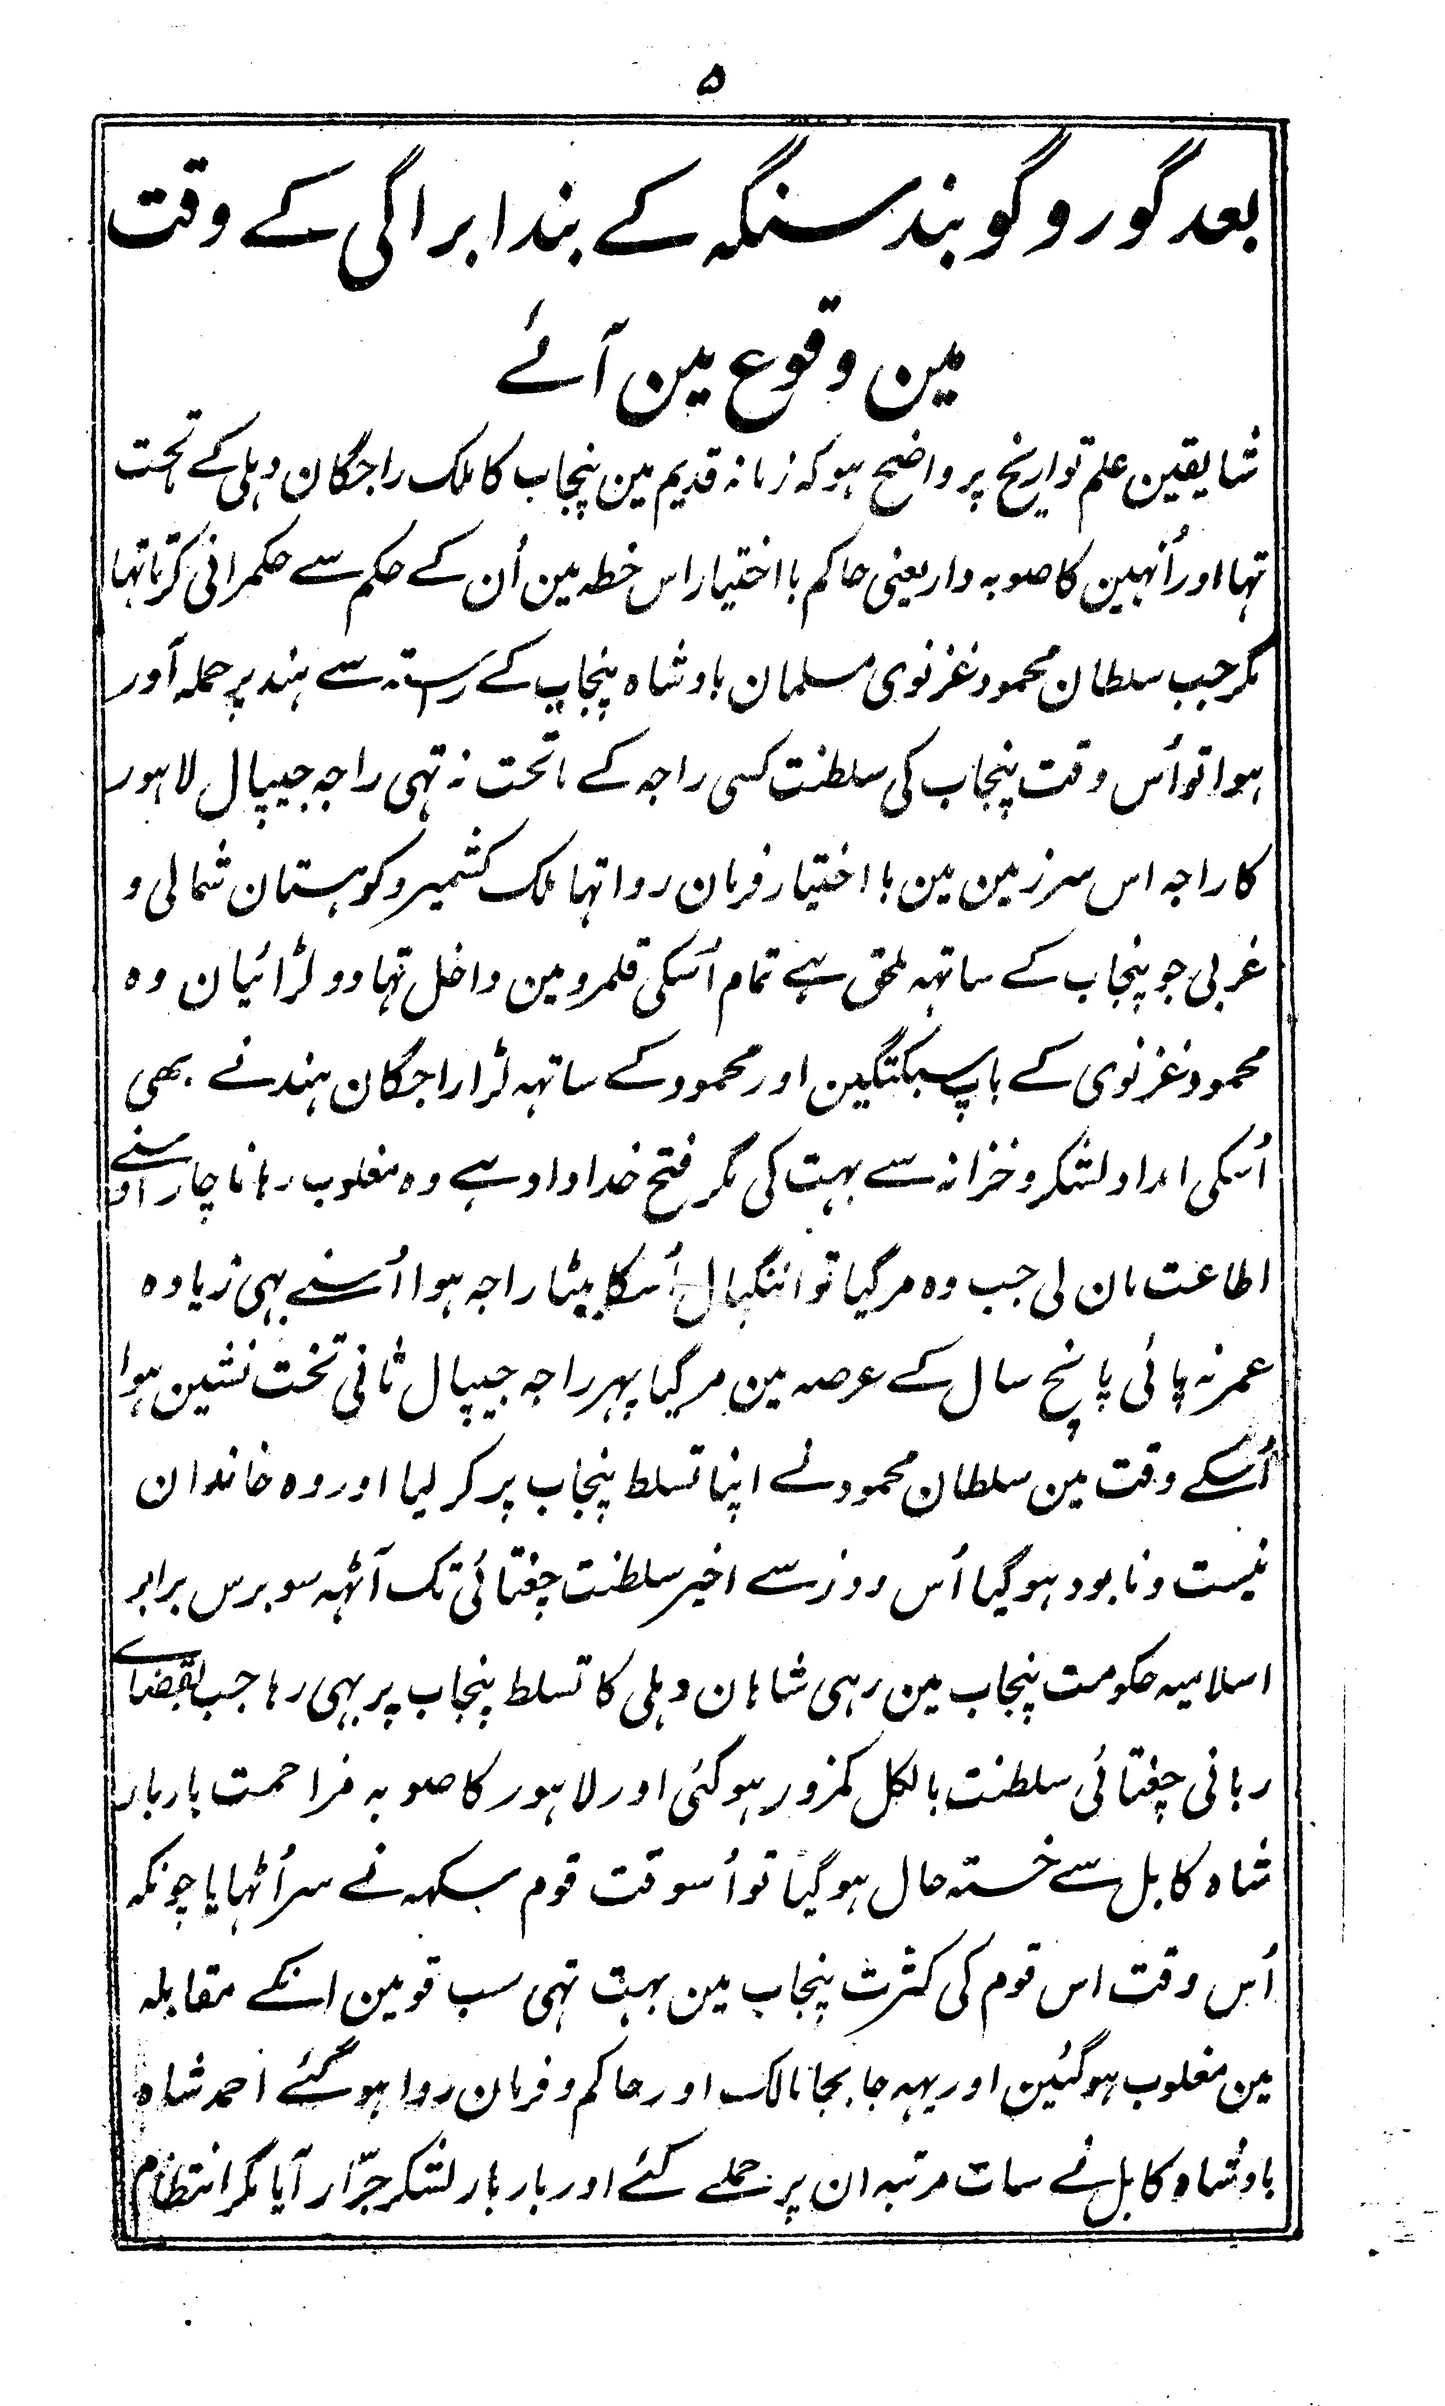 ۵
بعد گورو گوبند سنگہ کے بندا براگی کے وقت
مین وقوع مین آئے
شایقین علم تواریخ پر واضح ہو کہ زمانہ قدیم مین پنجاب کا ملک راجگان دہلی کے تحت
تہا اور اُنہین کا صوبہ دار یعنی حاکم با اختیار اس خطہ مین اُن کے حکم سے حکمرانی کرتا تہا
مگر جب سلطان محمود غزنوی مسلمان بادشاہ پنجاب کے رستہ سے ہند پر حملہ آور
ہوا تو اُس وقت پنجاب کی سلطنت کسی راجہ کے ماتحت نہ تہی راجہ جیپال لاہور
کا راجہ اس سرزمین مین با اختیار فرمان روا تہا ملک کشمیر و کوہستان شمالی و
غربی جو پنجاب کے ساتہہ ملحق ہے تمام اُسکی قلمرو مین داخل تہا دو لڑائیان وہ
محمود غزنوی کے باپ سبکتگین اور محمود کے ساتہہ لڑا راجگان ہند نے بھی
اُسکی امداد لشکر و خزانہ سے بہت کی مگر فتح خداداد ہے وہ مغلوب رہا ناچار اوسنے
اطاعت مان لی جب وہ مر گیا تو اننگپال اُسکا بیٹا راجہ ہوا اُسنے بہی زیادہ
عمر نہ پائی پانچ سال کے عرصہ مین مر گیا پہر راجہ جیپال ثانی تخت نشین ہوا
اُسکے وقت مین سلطان محمود نے اپنا تسلط پنجاب پر کر لیا اور وہ خاندان
نیست و نابود ہو گیا اُس روز سے اخیر سلطنت چغتائی تک آٹہہ سو برس برابر
اسلامیہ حکومت پنجاب مین رہی شاہان دہلی کا تسلط پنجاب پر بہی رہا جب بقضاے
ربانی چغتائی سلطنت بالکل کمزور ہو گئی اور لاہور کا صوبہ مزاحمت بار بار
شاہ کابل سے خستہ حال ہو گیا تو اُسوقت قوم سکہہ نے سر اُٹہایا چونکہ
اُس وقت اس قوم کی کثرت پنجاب مین بہت تہی سب قومین انکے مقابلہ
مین مغلوب ہو گئین اور یہہ جابجا مالک اور حاکم و فرمان روا ہو گئے احمد شاہ
بادشاہ کابل نے سات مرتبہ ان پر حملے کئے اور بار بار لشکر جرّار آیا مگر انتظام